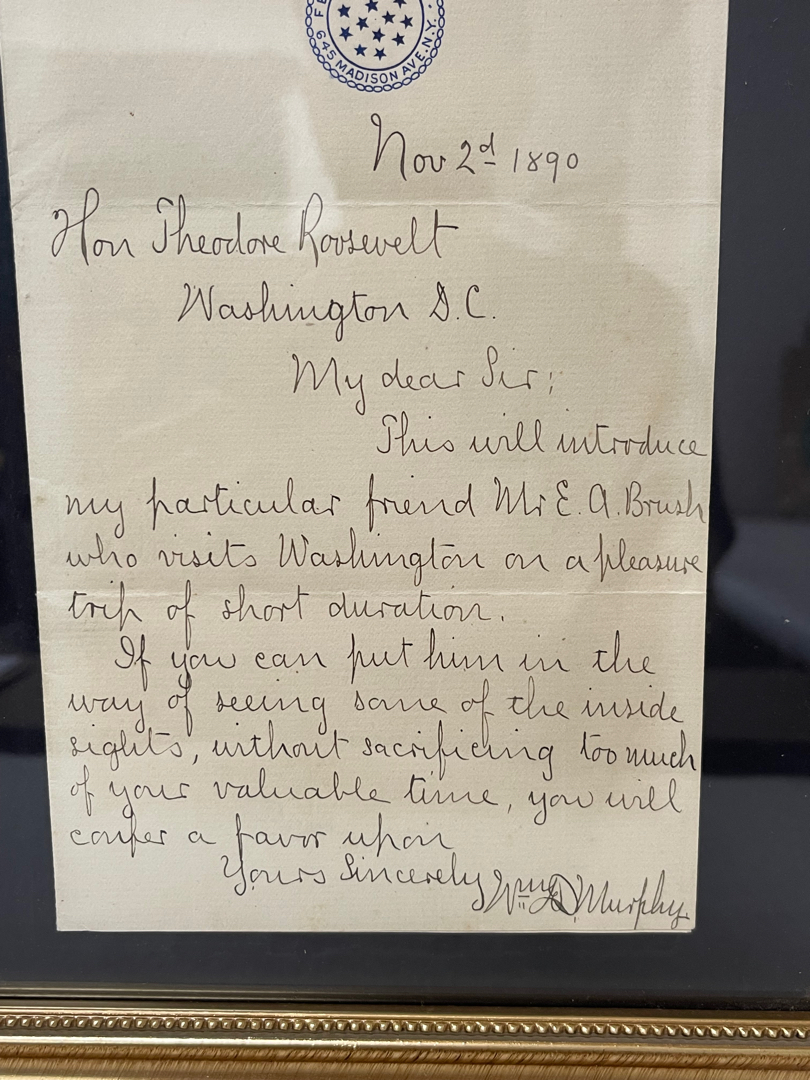 FE
645 MADISON AVE. N.Y.
Nov 2d 1890
Hon Theodore Roosevelt
Washington D.C.
My dear Sir;
This will introduce
my particular friend Mr E. A. Brush
who visits Washington on a pleasure
trip of short duration.
If you can put him in the
way of seeing some of the inside
sights, without sacrificing too much
of your valuable time, you will
confer a favor upon
Yours Sincerely Wm D. Murphy